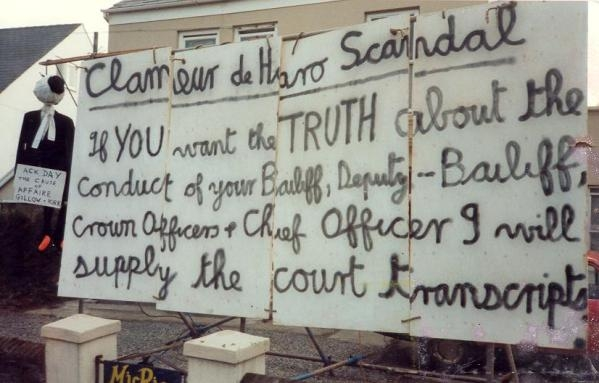 Clameur de Haro Scandal
If YOU want the TRUTH about the
conduct of your Bailiff, Deputy-Bailiff,
Crown Officers & Chief Officer I will
supply the court transcripts
ACK DAY
THE CAUSE
OF
AFFAIRE
GILLOW-KIRK